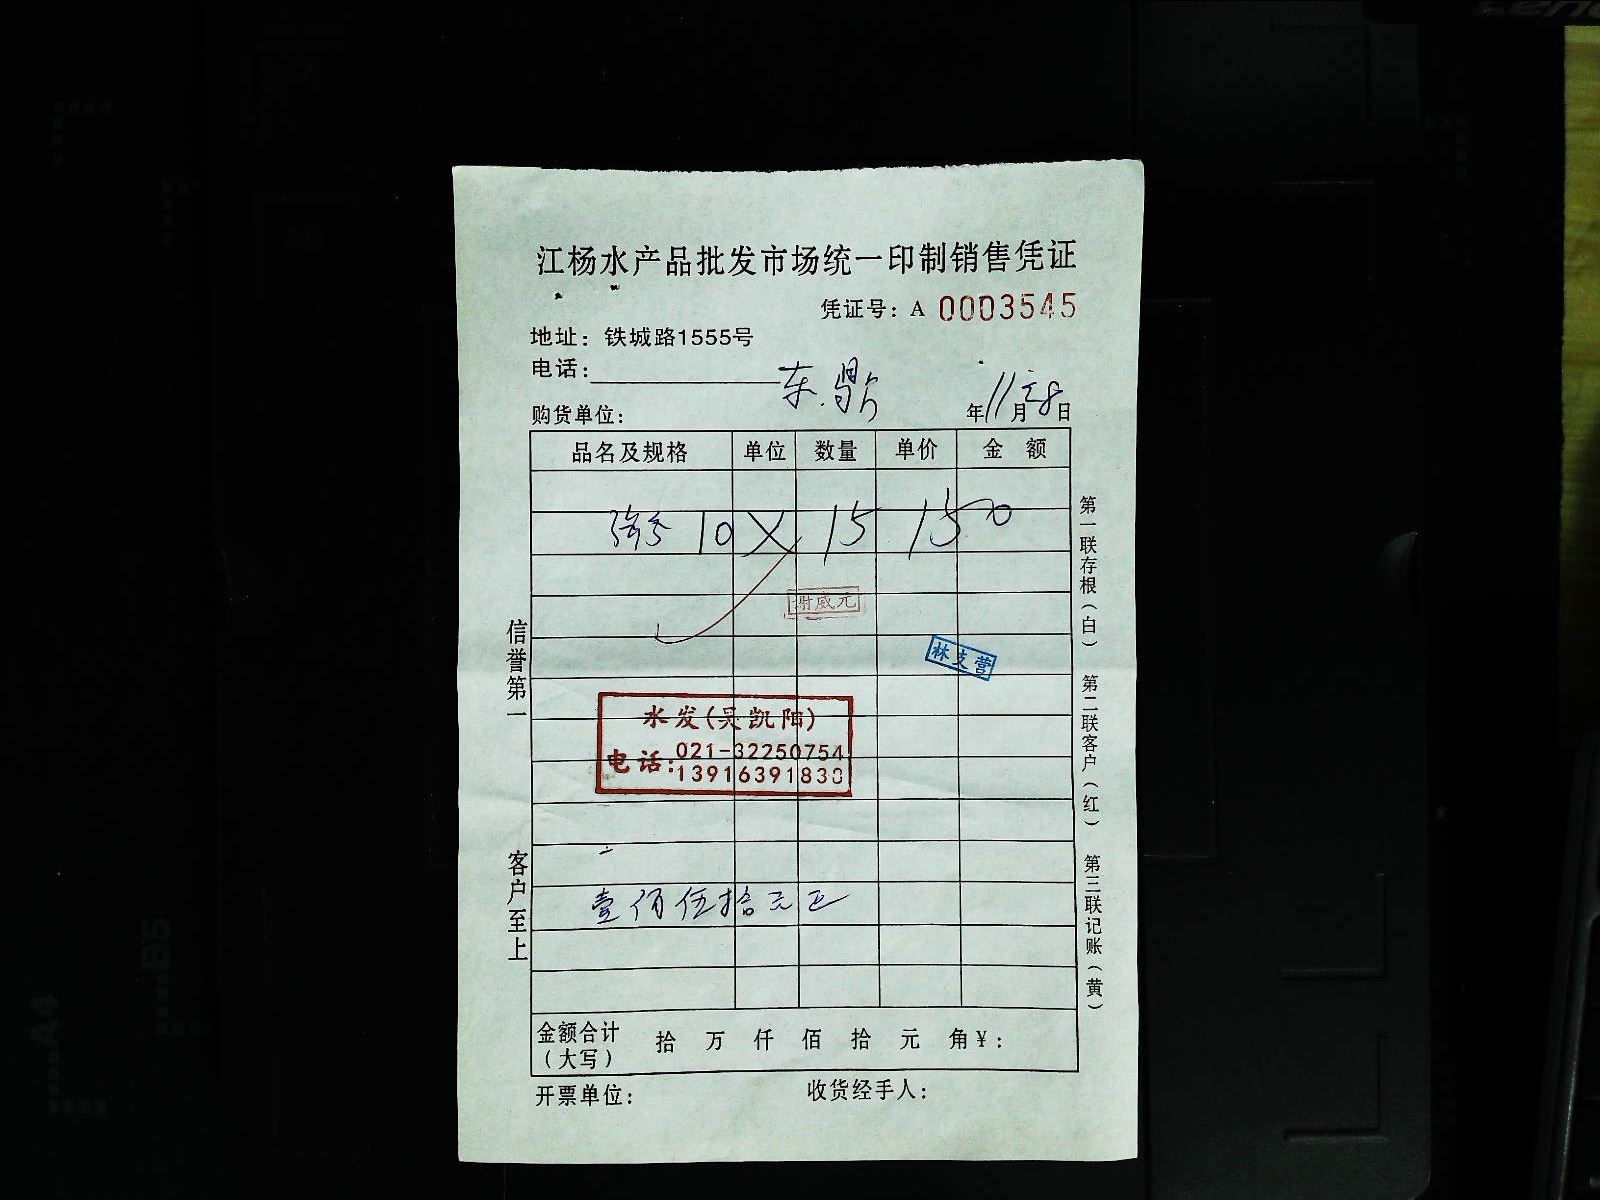 江杨水产品批发市场统一印制销售凭证
凭证号：A 0003545
地址：铁城路1555号
电话：
东
购货单位：
年11月28日
品名及规格 单位 数量 单价 金 额
10 X 15 150
谢威元
林支营
水发(吴凯阳)
电话：021-32250754
13916391830
壹佰伍拾元正
金额合计
（大写）
拾 万 仟 佰 拾 元 角￥：
开票单位： 收货经手人：
信誉第一
客户至上
第一联存根（白）
第二联客户（红）
第三联记账（黄）
A4
B5